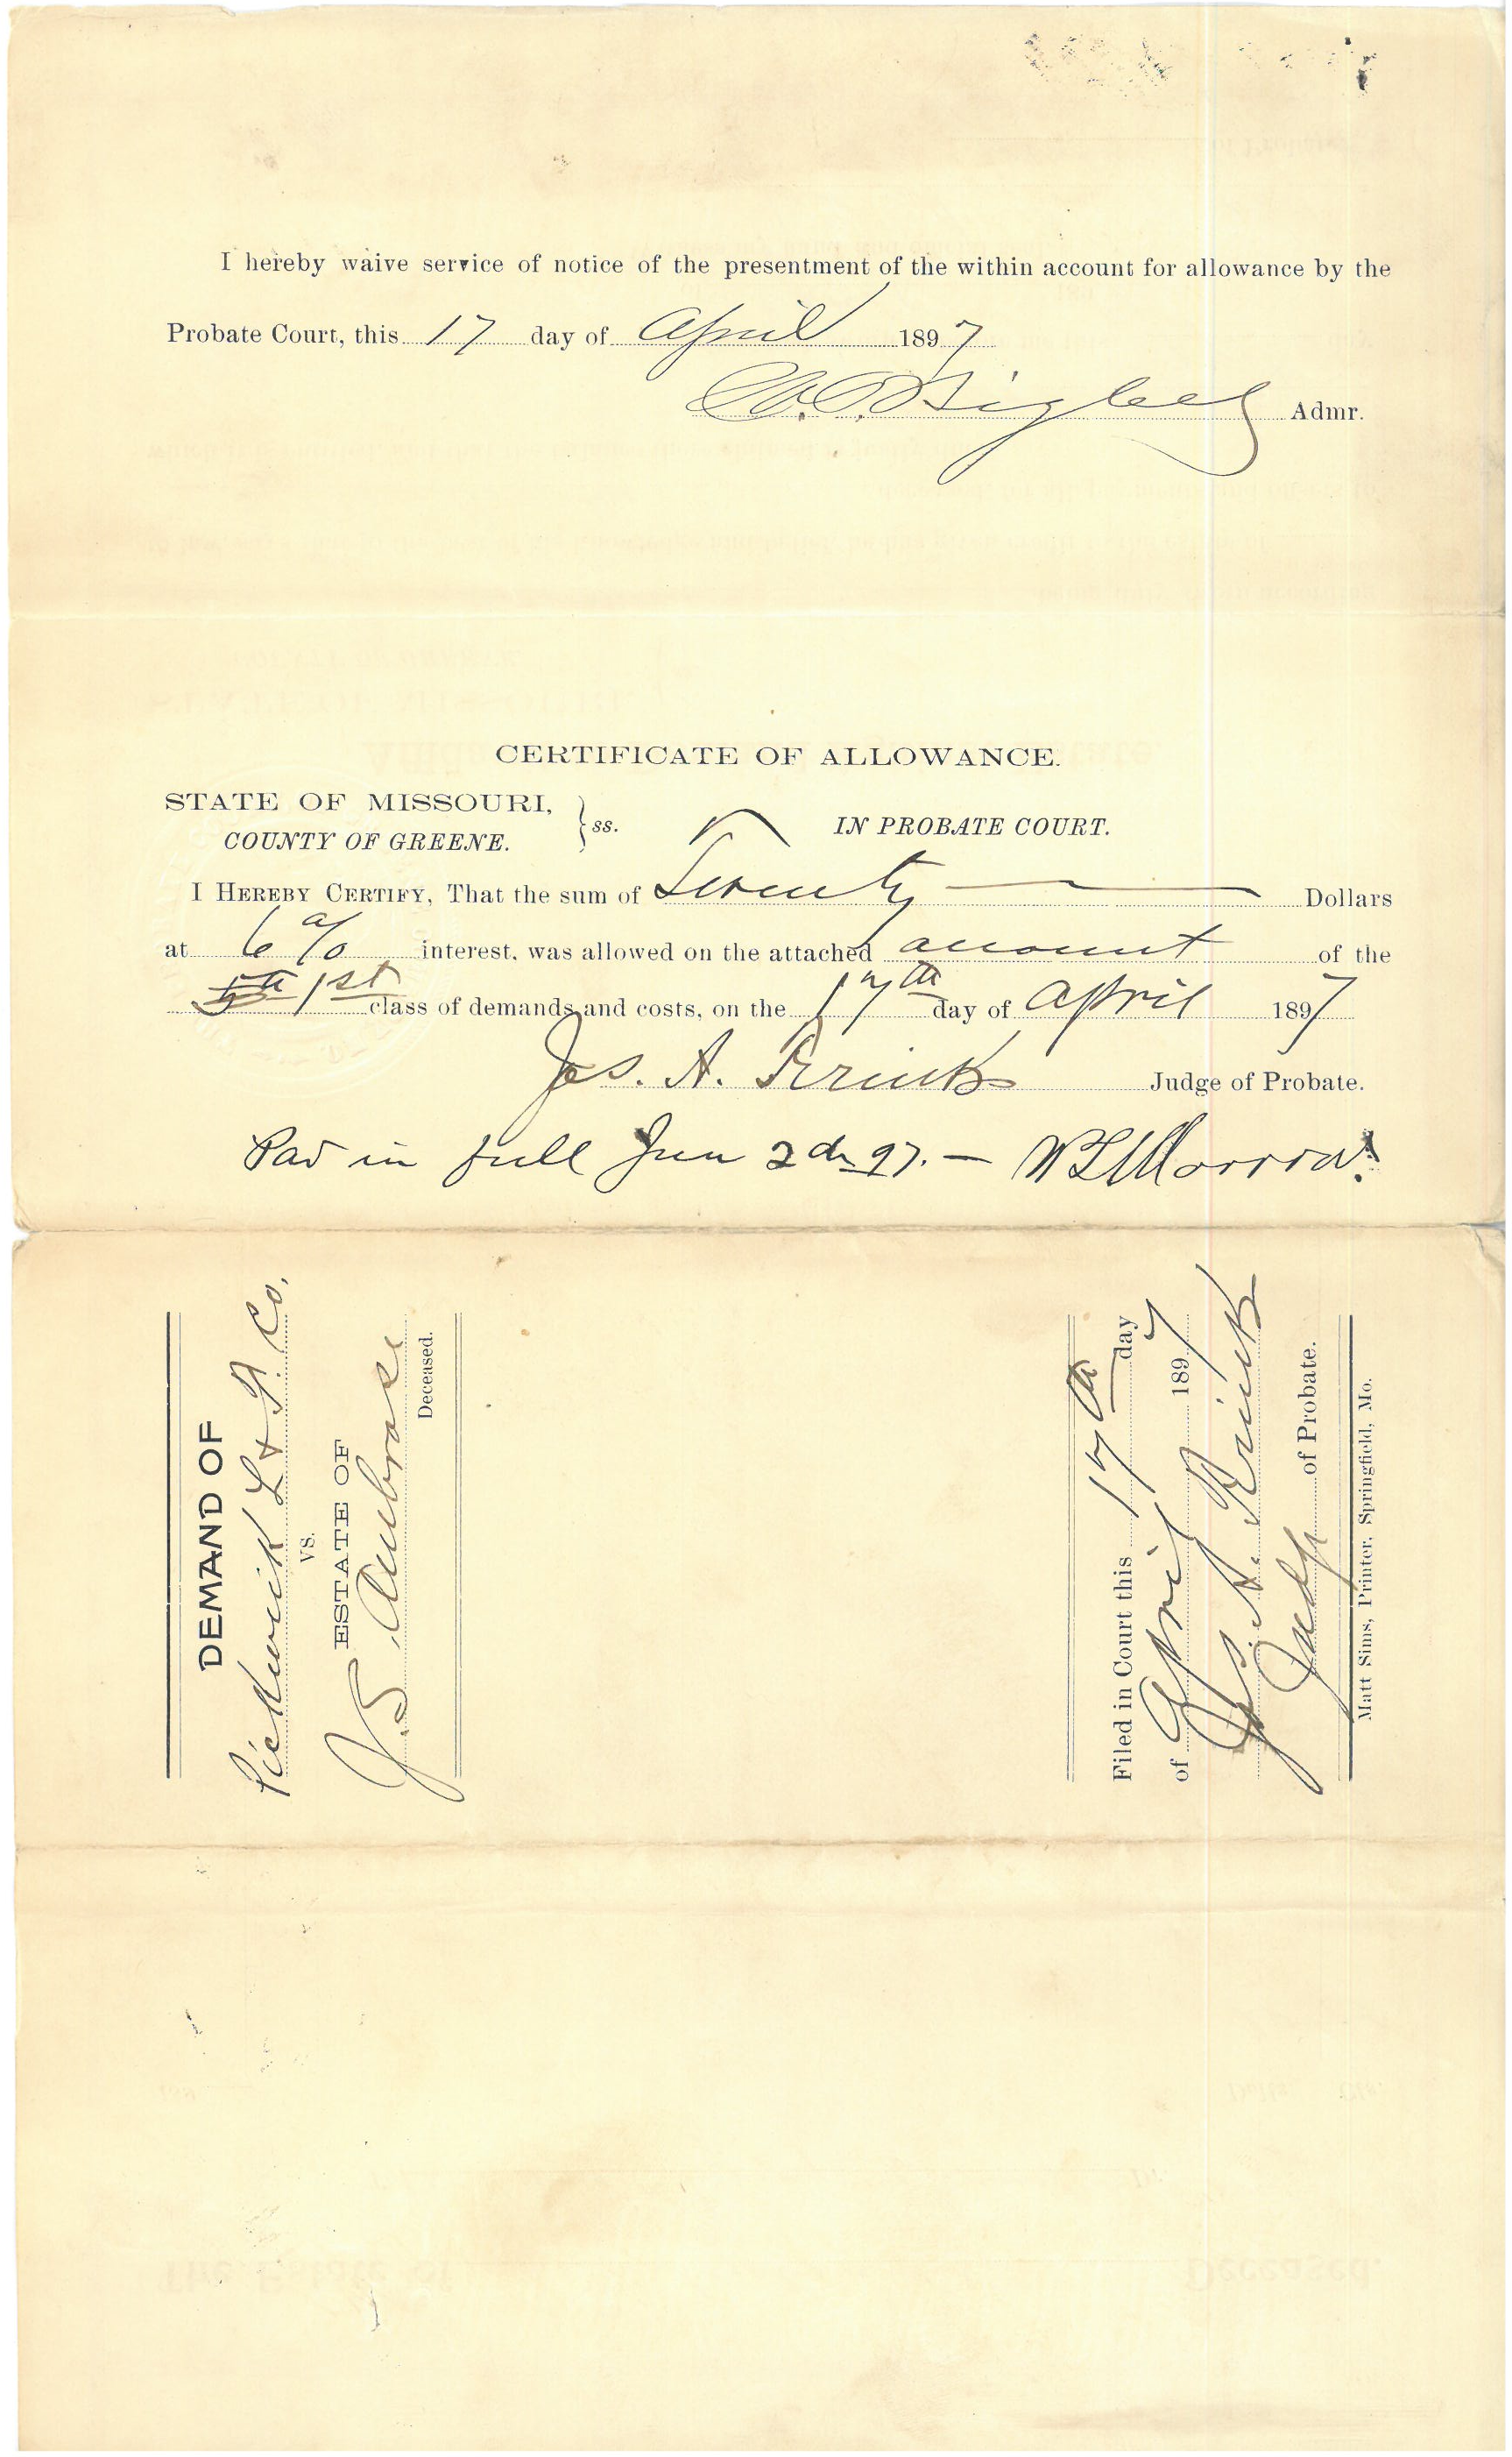 I hereby waive service of notice of the presentment of the within account for allowance by the
Probate Court, this 17 day of April 1897
Bigbee Admr.
CERTIFICATE OF ALLOWANCE.
STATE OF MISSOURI, } ss. IN PROBATE COURT.
COUNTY OF GREENE.
I HEREBY CERTIFY, That the sum of Seventy Dollars
at 6 % interest, was allowed on the attached account of the
5th 1st class of demands and costs, on the 17th day of April 1897
Jos. A. Judge of Probate.
in full Jun 2d 97. —
DEMAND OF
Pickwick L & T. Co.
VS.
ESTATE OF
J. S. Ambrose
Deceased.
Filed in Court this 17th day
of April 1897
A.
Judge of Probate.
Matt Sims, Printer, Springfield, Mo.